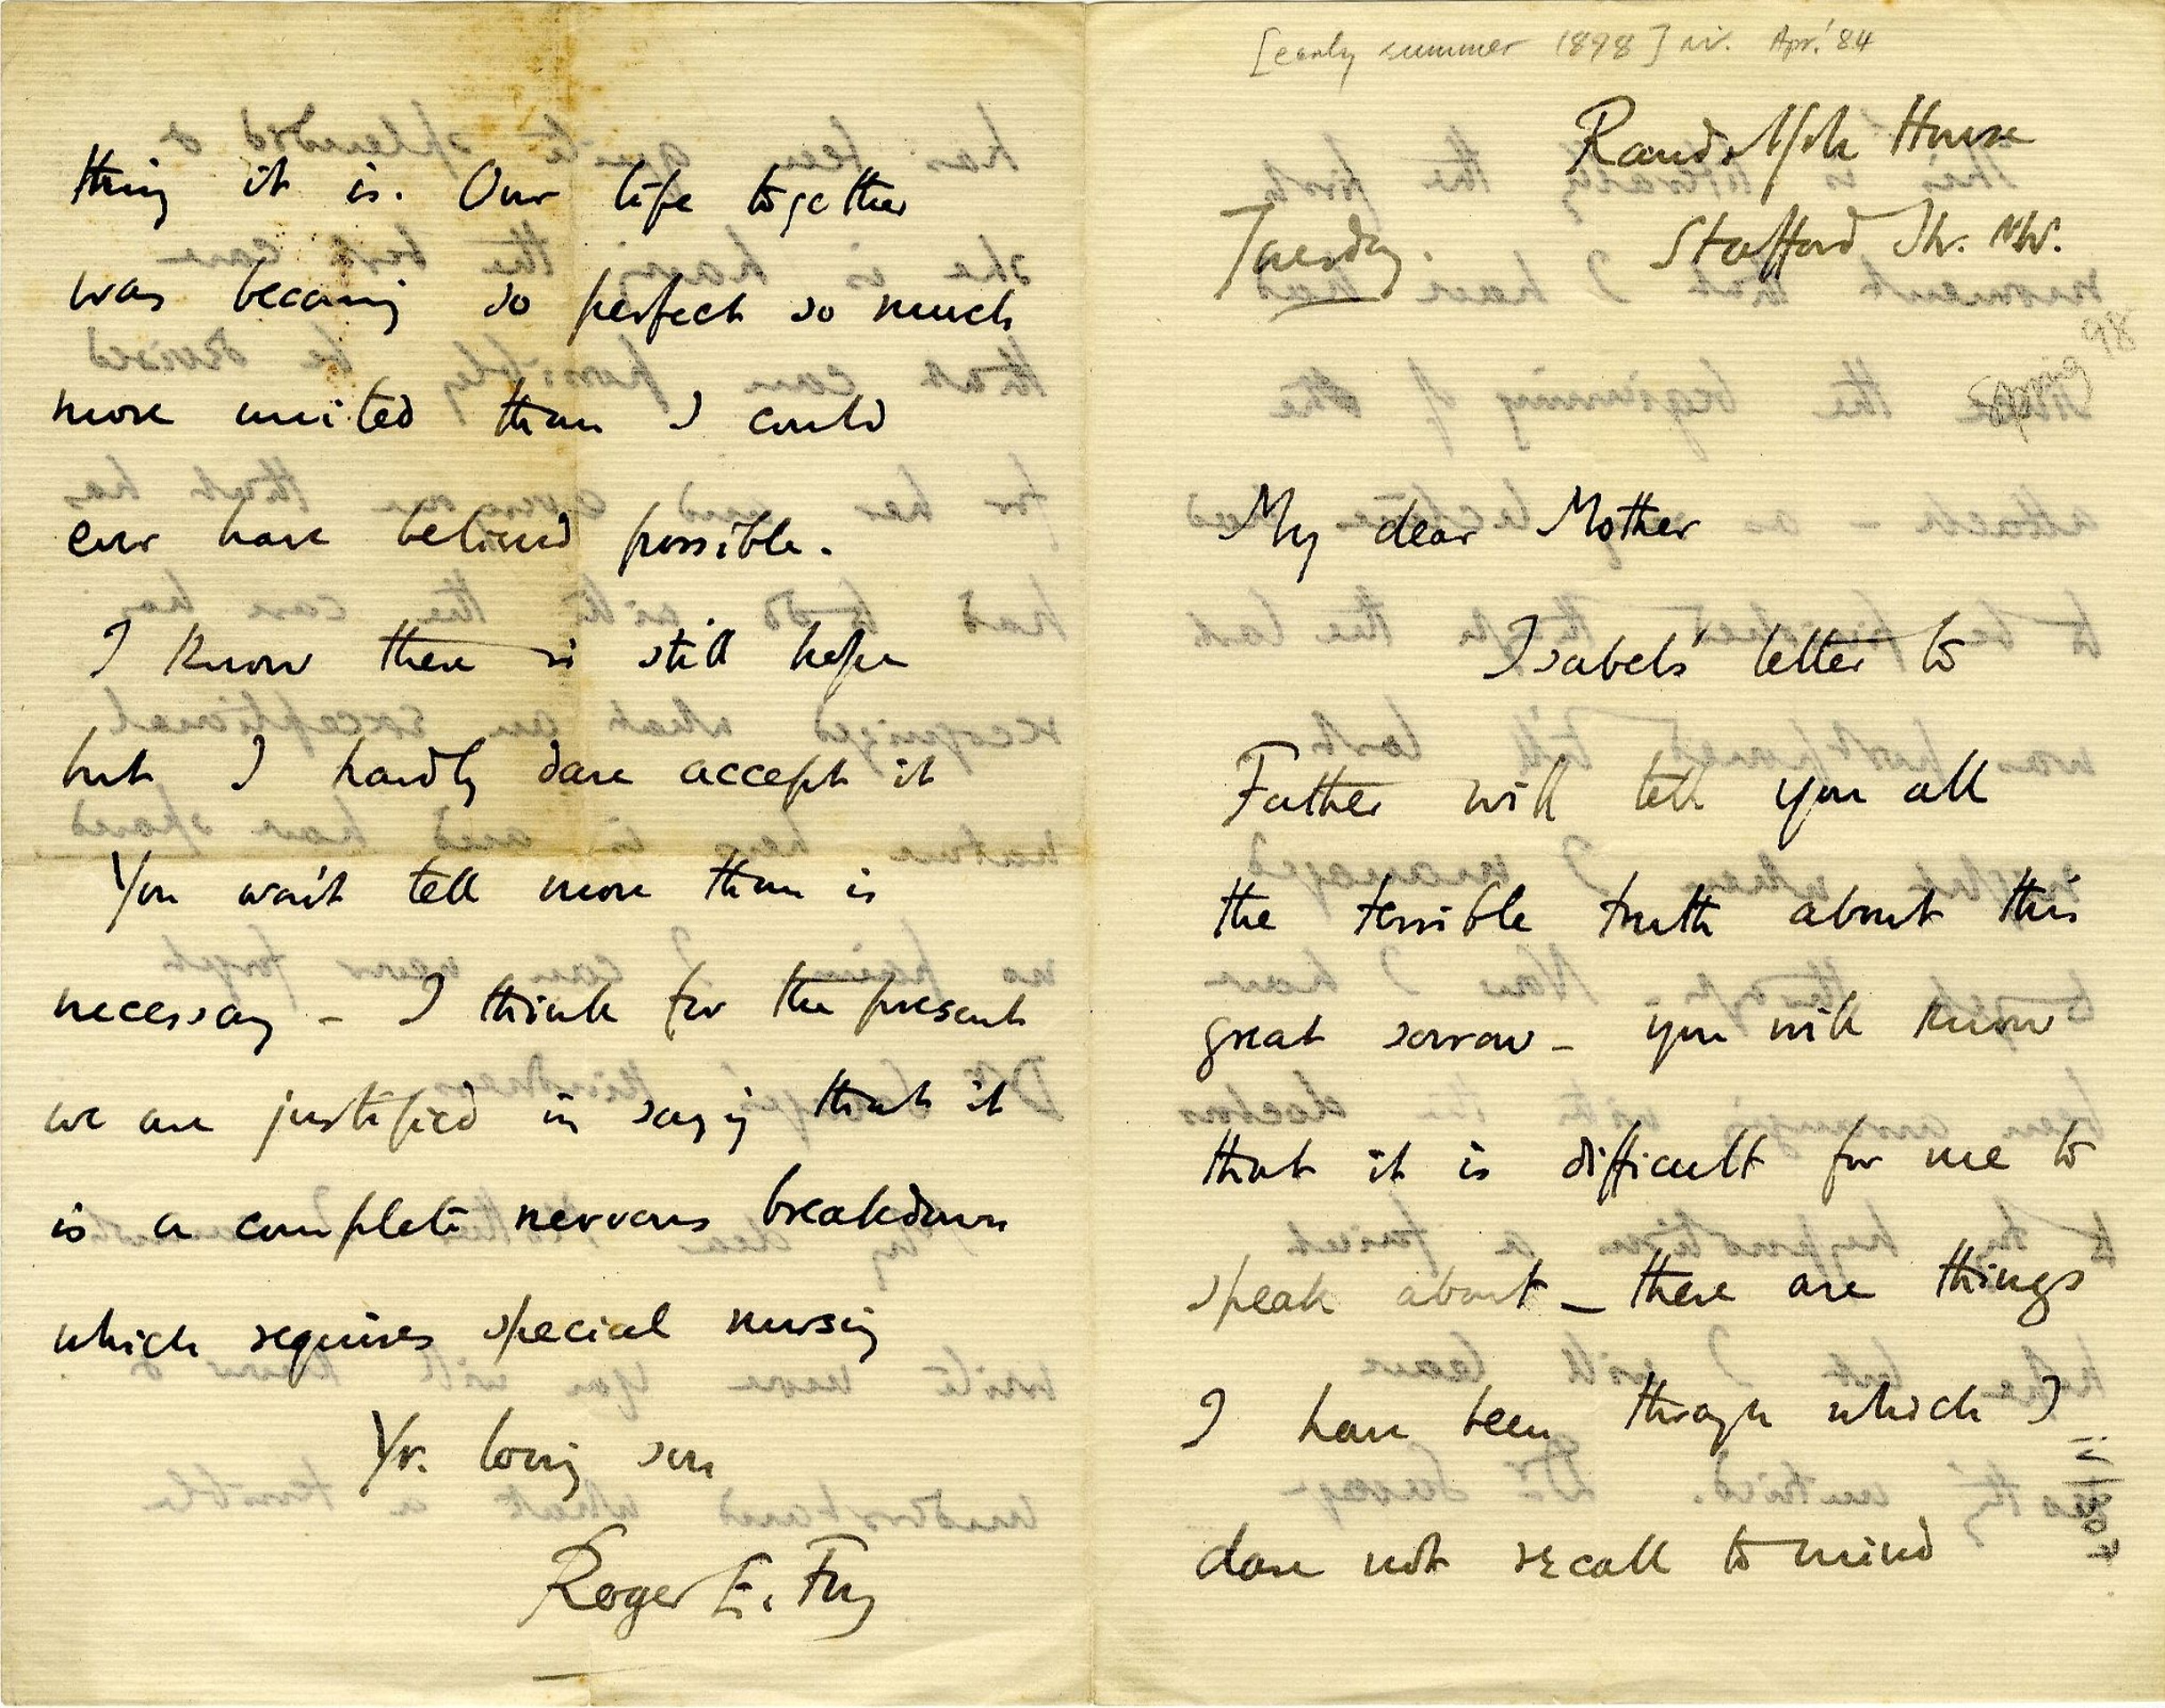 [early summer 1898] Apr.' 84
Randolph House
Tuesday. Stafford N.W.
Spring 98
My dear Mother
Isabel's letter to
Father will tell you all
the terrible truth about this
great sorrow - you will know
that it is difficult for me to
speak about - there are things
I have been through which I
dare not recall to mind
thing it is. Our life together
was becoming so perfect so much
more united than I could
ever have believed possible.
I know there is still hope
but I hardly dare accept it
You won't tell more than is
necessary - I think for the present
we are justified in saying that it
is a complete nervous breakdown
which requires special nursing
Yr. loving son
Roger E. Fry